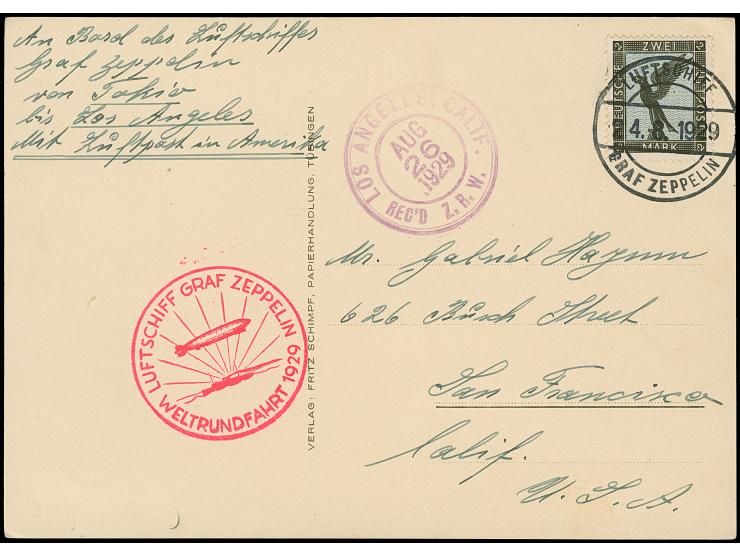 An Bord des Luftschiffes
Graf Zeppelin
von Tokio
bis Los Angeles
Mit Luftpost in Amerika
LOS ANGELES, CALIF.
AUG
26
1929
REC'D Z. R. W.
2 ZWEI 2
DEUTSCHE
MARK
LUFTSCHIFF
4. 8. 1929
GRAF ZEPPELIN
VERLAG: FRITZ SCHIMPF, PAPIERHANDLUNG, TÜBINGEN
Mr. Gabriel
626 Busch Street
San Francisco
Calif.
U. S. A.
LUFTSCHIFF GRAF ZEPPELIN
WELTRUNDFAHRT 1929